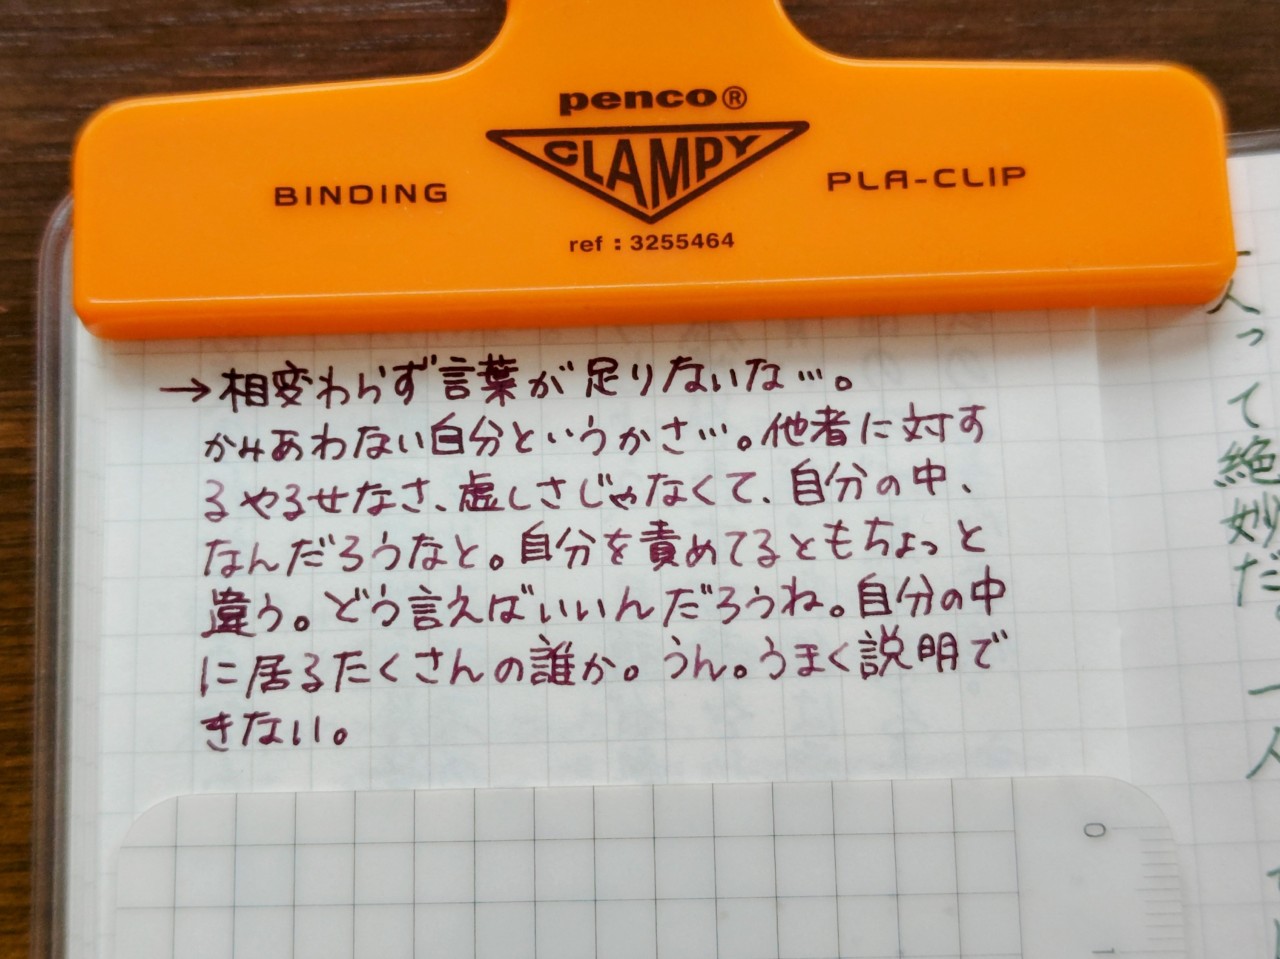 penco®
CLAMPY
BINDING
PLA-CLIP
ref : 3255464
→相変わらず言葉が足りないな…。
かみあわない自分というかさ…。他者に対す
るやるせなさ、虚しさじゃなくて、自分の中、
なんだろうなと。自分を責めてるともちょっと
違う。どう言えばいいんだろうね。自分の中
に居るたくさんの誰か。うん。うまく説明で
きない。
って絶妙だ
0
1